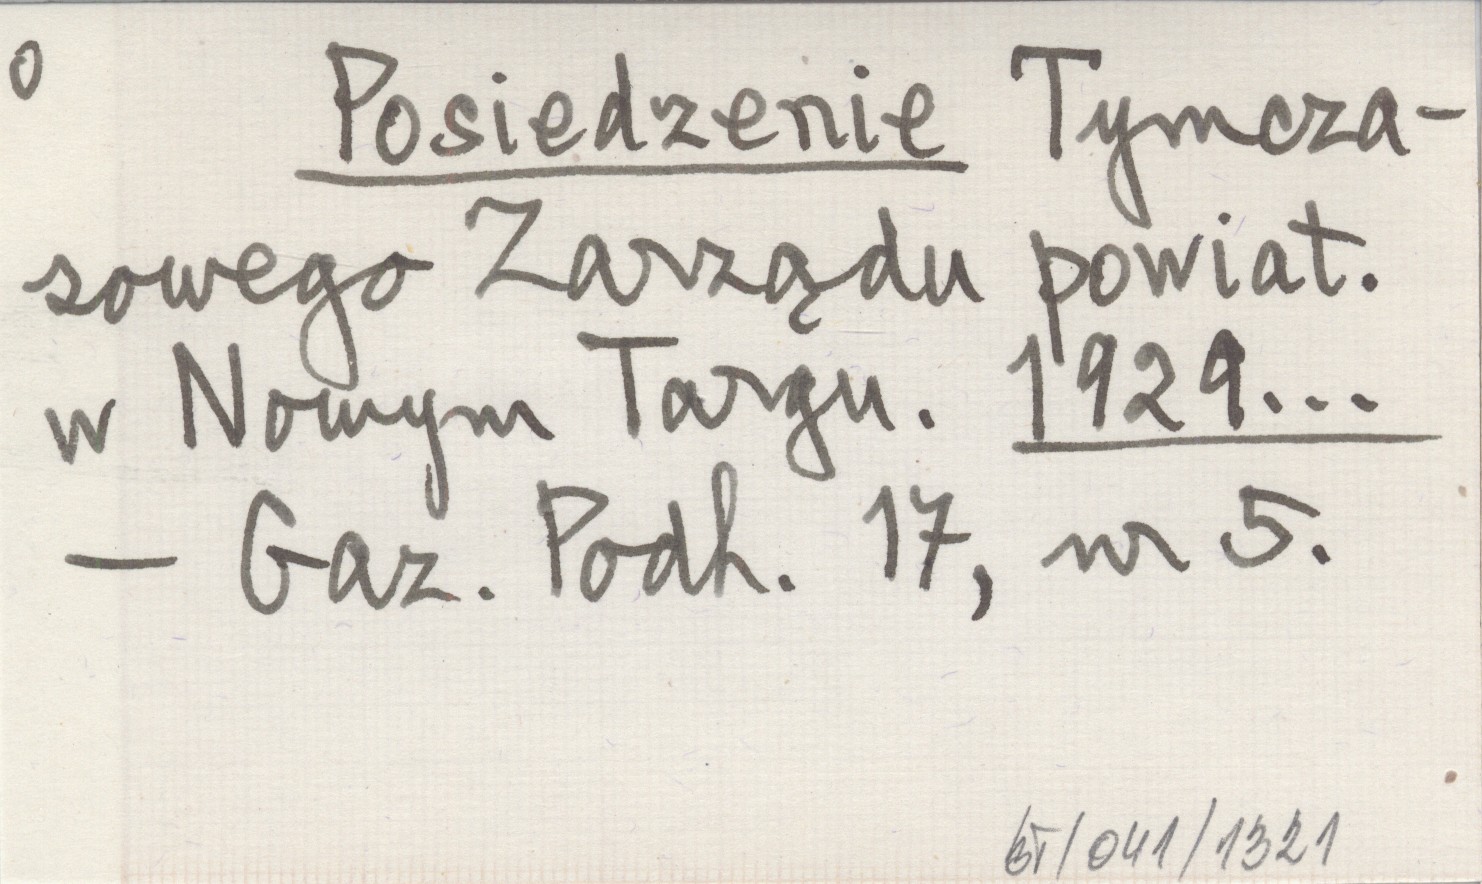 o Posiedzenie Tymcza-
sowego Zarządu powiat.
w Nowym Targu. 1929...
— Gaz. Podh. 17, nr 5.
BT/041/1321